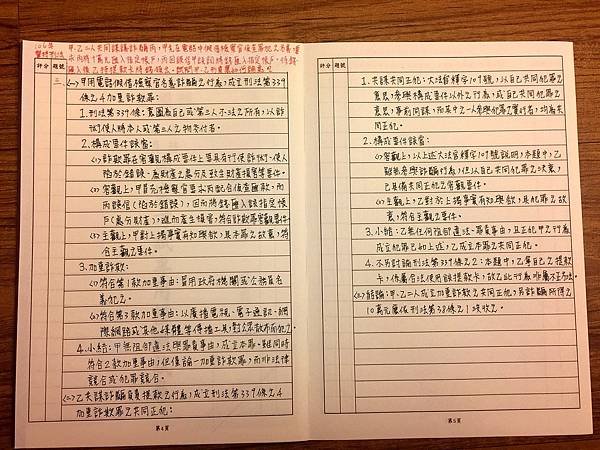 106年
警特刑法
甲、乙二人共同謀議詐騙丙,甲先在電話中假借檢察官偵查犯乙名義,要
求丙將10萬元匯入指定帳戶,丙因誤信甲說詞將錢匯入指定帳戶,待錢
匯入後,乙持提款卡將錢領出。試問甲、乙的責任如何論處?
評分 題號
三
(一)甲用電話假借檢察官名義詐騙之行為,成立刑法第339
條之4加重詐欺罪:
1.刑法第339條:意圖為自己或第三人不法之所有,以詐
術使人將本人或第三人之物交付者。
2.構成要件該當:
(1)詐欺罪在客觀構成要件上需具有行使詐術、使人
陷於錯誤、為財產之處分及致生財產損害等要件。
(2)客觀上,甲冒充檢察官要求丙配合偵查匯款,而
丙誤信(陷於錯誤),但而將錢匯入該指定帳
戶(處分財產),進而產生損害,符合詐欺罪客觀要件。
(3)主觀上,甲對上揭事實有知與欲,具本罪之故意,符
合主觀之要件。
3.加重詐欺:
(1)符合第1款加重事由:冒用政府機關或公務員名
義犯之。
(2)符合第3款加重事由:以廣播電視、電子通訊、網
際網路或其他媒體等傳播工具,對公眾散布而犯之。
4.小結:甲無阻卻違法與罪責事由,成立本罪。雖同時
符合2款加重事由,但僅論一加重詐欺罪,而非法律
競合或犯罪競合。
(二)乙共謀詐騙負責提款之行為,成立刑法第339條之4
加重詐欺罪之共同正犯:
第4頁
評分 題號
1.共謀共同正犯:大法官釋字109號,以自己共同犯罪之
意思,參與構成要件以外之行為,或自己共同犯罪之
意思,事前同謀,而其中之一人參與犯罪之實行者,均為共
同正犯。
2.構成要件該當:
(1)客觀上,以上述大法官釋字109號說明,本題中,乙
雖無參與詐騙行為,但以自己共同犯罪之決意,
已具備共同正犯之客觀要件。
(2)主觀上,乙對於上揭事實有知與欲,具此犯罪之故
意,符合主觀要件。
3.小結:乙無任何阻卻違法、罪責事由,且正犯甲之行為
成立犯罪已如上述,乙成立本罪之共同正犯。
4.不另討論刑法第339條之2:本題中,乙拿自己之提款
卡,係屬合法使用該提款卡,故乙此行為非屬不正方法。
(三)結論:甲、乙二人成立加重詐欺之共同正犯,另詐騙所得之
10萬元屬依刑法第38條之1沒收之。
第5頁